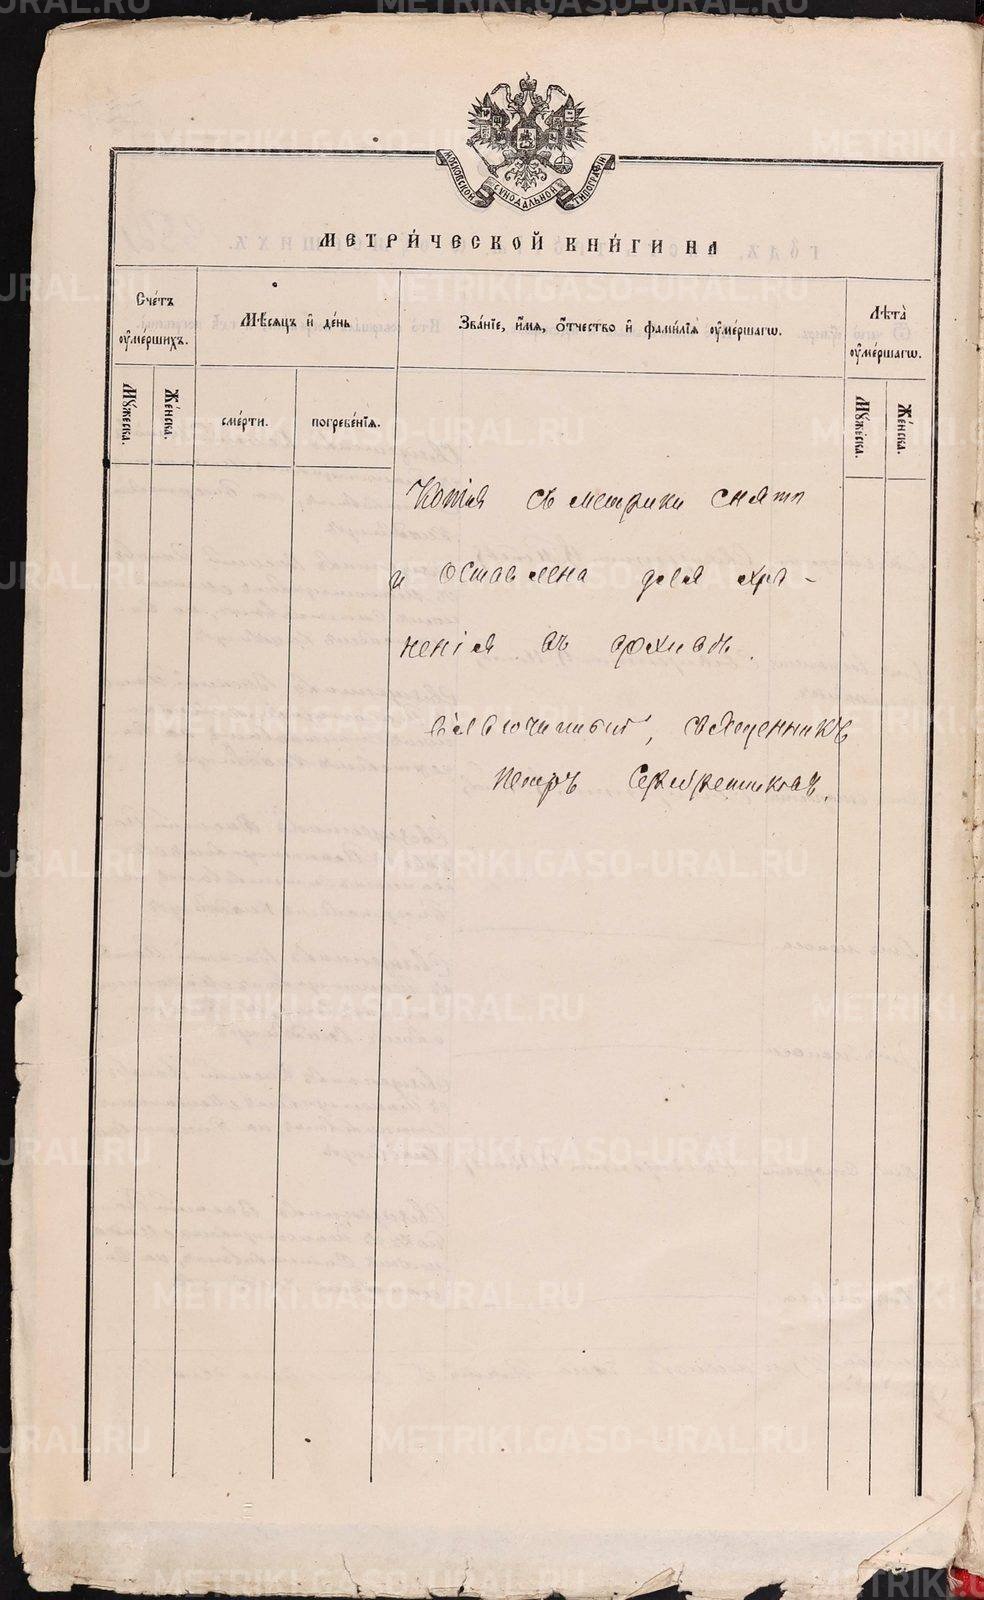 METRIKI.GASO-URAL.RU
МОСКОВСКОЙ СУНОДАЛЬНОЙ ТИПОГРАФІИ
МЕТРИ́ЧЕСКОЙ КНИ́ГИ НА
Сче́тъ оу҆ме́ршихъ.
Мѣ́сяцъ и҆ де́нь
Зва́нїе, и҆́мя, ѻ҆́тчество и҆ фами́лїя оу҆ме́ршагѡ.
Лѣ́та оу҆ме́ршагѡ.
Мꙋ́жеска.
Же́нска.
сме́рти.
погребе́нїя.
Мꙋ́жеска.
Же́нска.
Копія съ метрики снята
и оставлена для хра-
ненія въ архивѣ.
священникъ
Петръ Серебренниковъ.